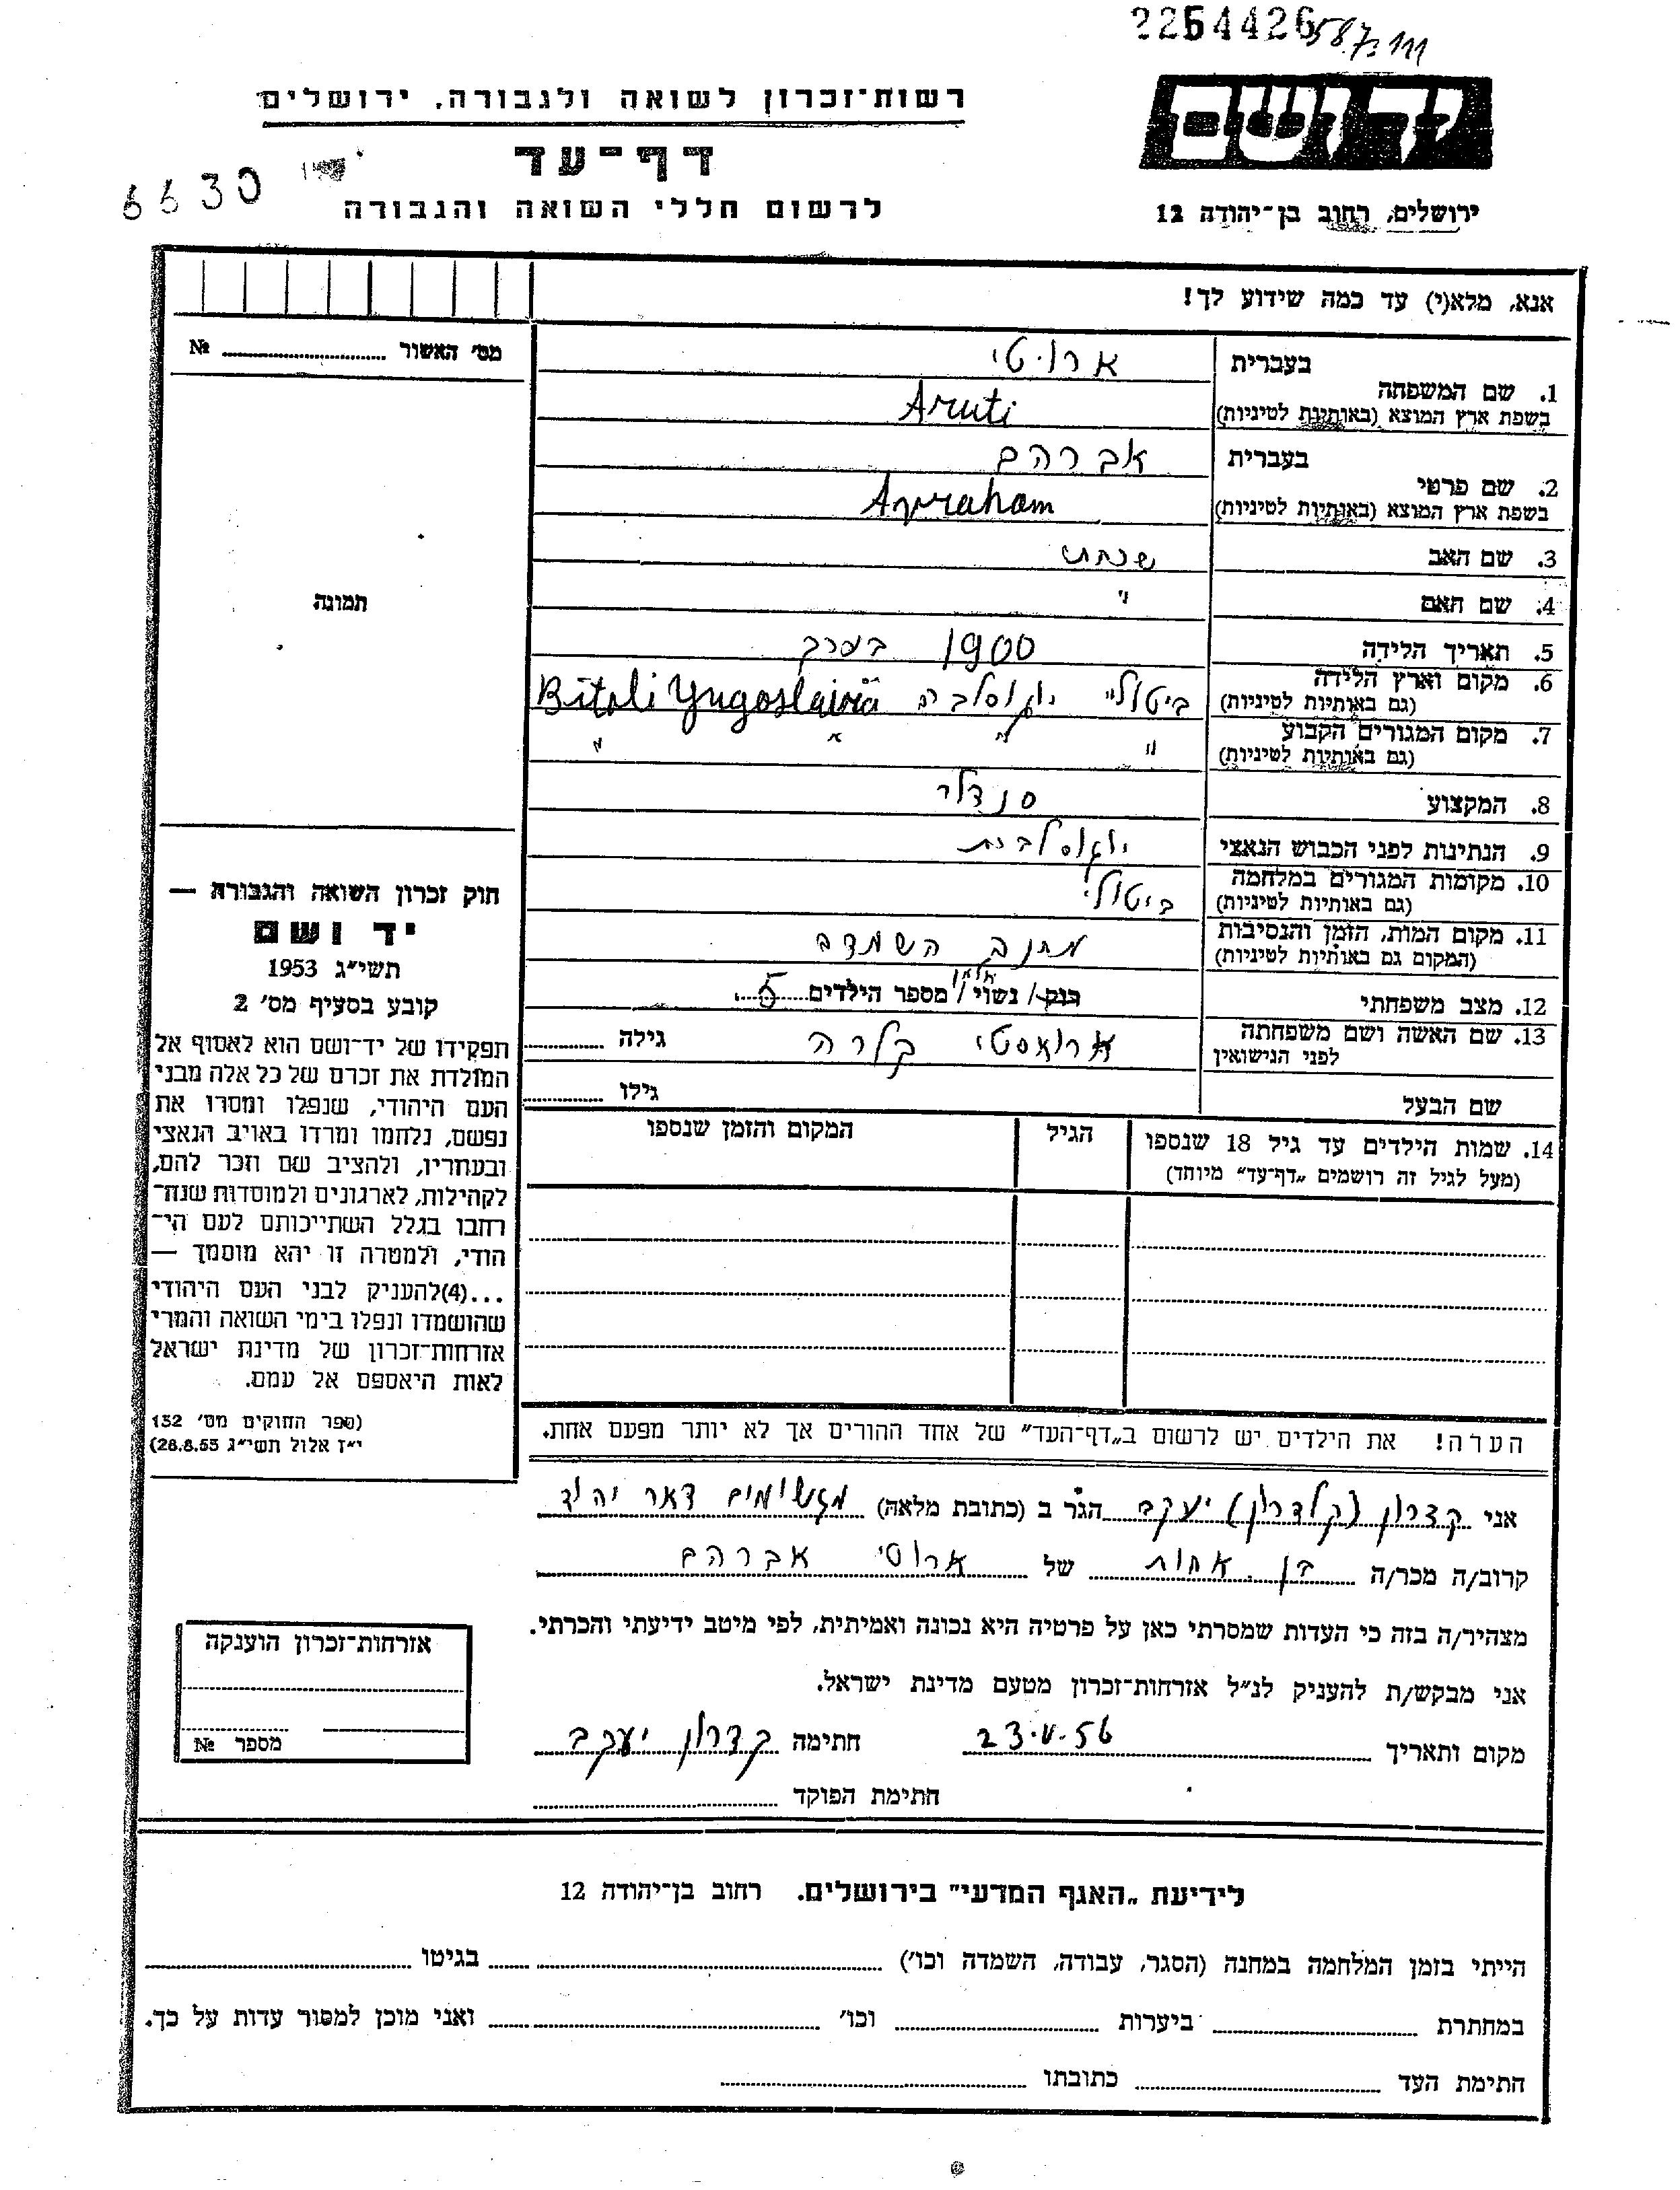 2264426
587.111
יד ושם
רשות־זכרון לשואה ולגבורה, ירושלים
דף־עד
6630
לרשום חללי השואה והגבורה
ירושלים, רחוב בן־יהודה 12
אנא, מלא(י) עד כמה שידוע לך!
מס׳ האשור № 
בעברית ארוטי
1. שם המשפחה
בשפת ארץ המוצא (באותיות לטיניות) Aruti
בעברית אברהם
2. שם פרטי
בשפת ארץ המוצא (באותיות לטיניות) Avraham
3. שם האב
4. שם האם
תמונה
5. תאריך הלידה 1900 בערך
6. מקום וארץ הלידה
(גם באותיות לטיניות) ביטולי יוגוסלביה Bitoli Yugoslavia
7. מקום המגורים הקבוע
(גם באותיות לטיניות) " " " "
8. המקצוע סנדלר
9. הנתינות לפני הכבוש הנאצי יוגוסלבית
10. מקומות המגורים במלחמה
(גם באותיות לטיניות) ביטולי
11. מקום המות, הזמן והנסיבות
(המקום גם באותיות לטיניות) מחנה השמדה
12. מצב משפחתי רוק/ נשוי/ מספר הילדים 5
13. שם האשה ושם משפחתה
לפני הנישואין קלרה גילה
שם הבעל גילו
14. שמות הילדים עד גיל 18 שנספו
(מעל לגיל זה רושמים „דף־עד” מיוחד)
הגיל
המקום והזמן שנספו
חוק זכרון השואה והגבורה —
יד ושם
תשי״ג 1953
קובע בסעיף מס׳ 2
תפקידו של יד־ושם הוא לאסוף אל
המולדת את זכרם של כל אלה מבני
העם היהודי, שנפלו ומסרו את
נפשם, נלחמו ומרדו באויב הנאצי
ובעוזריו, ולהציב שם וזכר להם,
לקהילות, לארגונים ולמוסדות שנח־
רבו בגלל השתייכותם לעם הי־
הודי, ולמטרה זו יהא מוסמך —
...(4)להעניק לבני העם היהודי
שהושמדו ונפלו בימי השואה והמרי
אזרחות־זכרון של מדינת ישראל
לאות היאספם אל עמם.
(ספר החוקים מס׳ 132
י״ז אלול תשי״ג 28.8.53)
הערה! את הילדים יש לרשום ב„דף־העד” של אחד ההורים אך לא יותר מפעם אחת.
אני קצרון (קלדרון) יעקב הגר ב (כתובת מלאה) מגשימים דאר יהוד
קרוב/ה מכר/ה בן אחות של ארוטי אברהם
מצהיר/ה בזה כי העדות שמסרתי כאן על פרטיה היא נכונה ואמיתית, לפי מיטב ידיעתי והכרתי.
אני מבקש/ת להעניק לנ״ל אזרחות־זכרון מטעם מדינת ישראל.
מקום ותאריך 23.V.56 חתימה קצרון יעקב
חתימת הפוקד
אזרחות־זכרון הוענקה
מספר №
לידיעת „האגף המדעי” בירושלים. רחוב בן־יהודה 12
הייתי בזמן המלחמה במחנה (הסגר, עבודה, השמדה וכו׳) בגיטו
במחתרת ביערות וכו׳ ואני מוכן למסור עדות על כך.
חתימת העד כתובתו